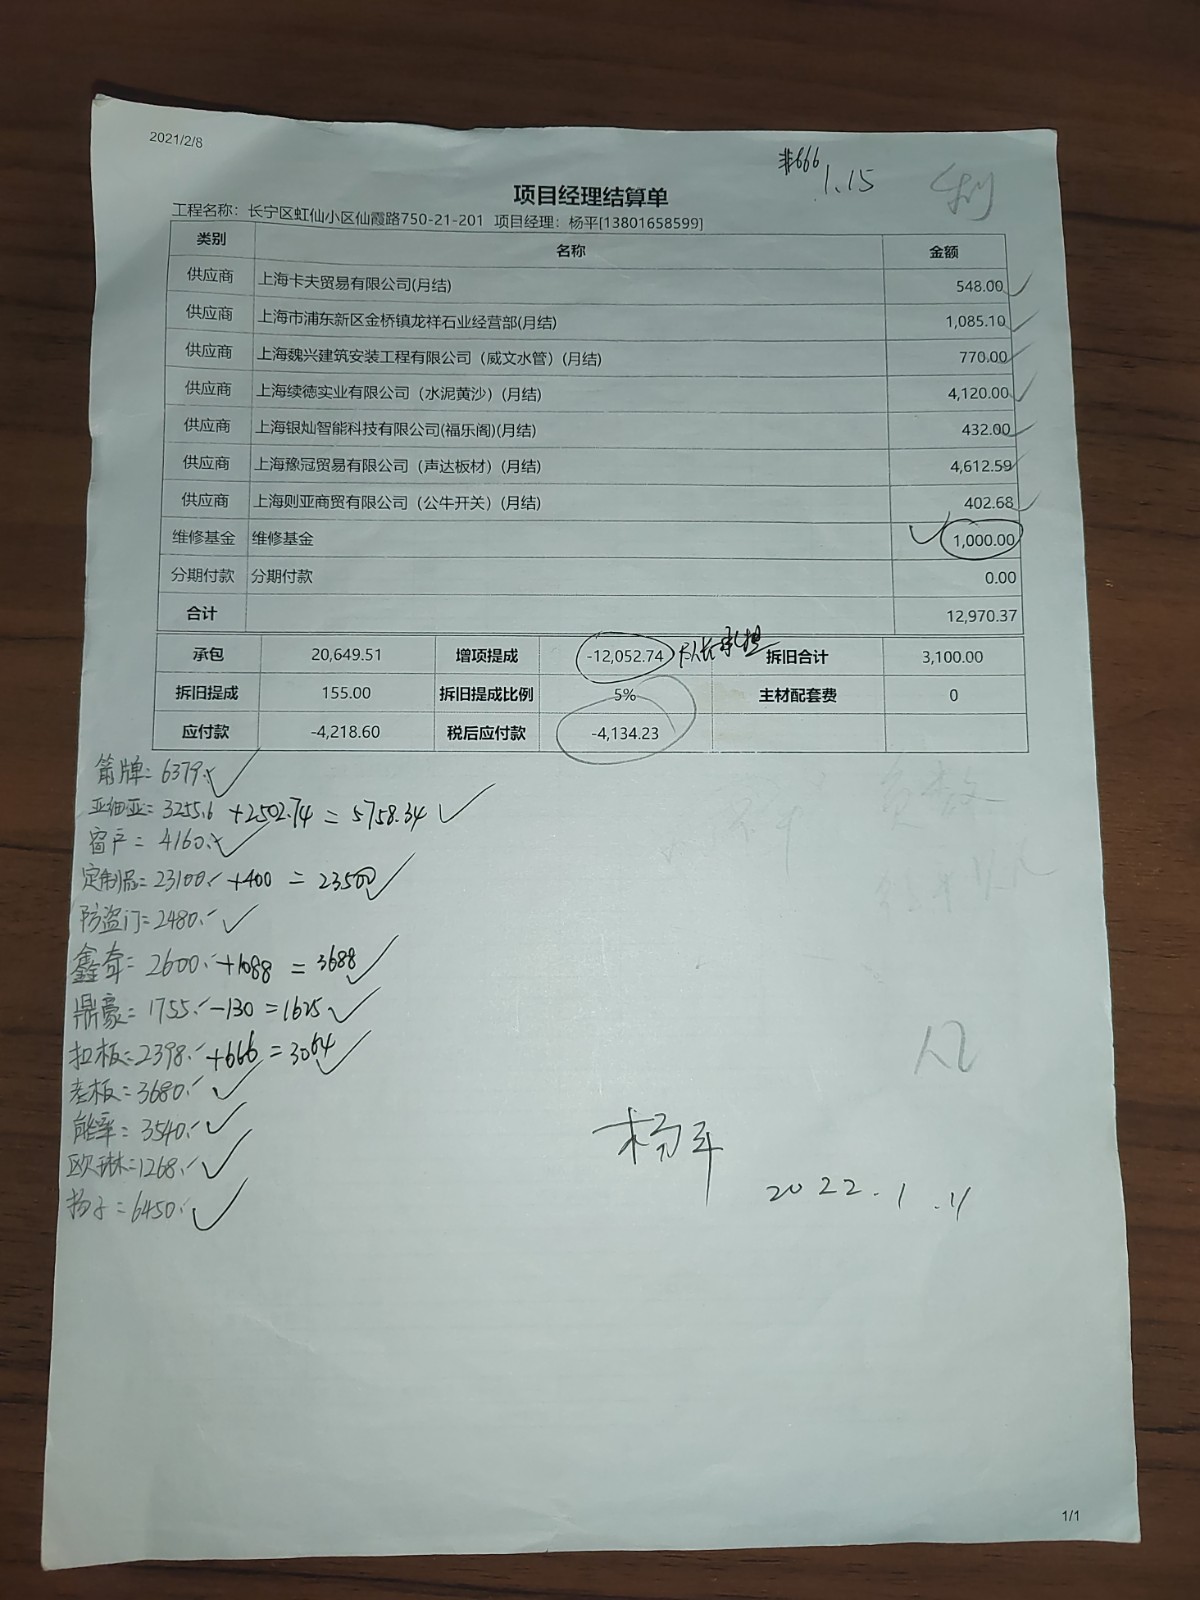 2021/2/8
#666
1.15
项目经理结算单
工程名称：长宁区虹仙小区仙霞路750-21-201 项目经理：杨平[13801658599]
类别 名称 金额
供应商 上海卡夫贸易有限公司(月结) 548.00
供应商 上海市浦东新区金桥镇龙祥石业经营部(月结) 1,085.10
供应商 上海魏兴建筑安装工程有限公司（威文水管）(月结) 770.00
供应商 上海续德实业有限公司（水泥黄沙）(月结) 4,120.00
供应商 上海银灿智能科技有限公司(福乐阁)(月结) 432.00
供应商 上海豫冠贸易有限公司（声达板材）(月结) 4,612.59
供应商 上海则亚商贸有限公司（公牛开关）(月结) 402.68
维修基金 维修基金 1,000.00
分期付款 分期付款 0.00
合计 12,970.37
承包 20,649.51 增项提成 -12,052.74 承担 拆旧合计 3,100.00
拆旧提成 155.00 拆旧提成比例 5% 主材配套费 0
应付款 -4,218.60 税后应付款 -4,134.23
箭牌：6379.-
亚细亚=3255.6 +2502.74 = 5758.34
窗户= 4160.-
定制品=23100.- +400 = 23500
防盗门=2480.-
鑫奇= 2600.- +1088 = 3688
鼎豪= 1755.- -130 =1625
扣板=2398.- +666 =3064
老板=3680.-
能率= 3540.-
欧琳=1268.-
扬子=6450.-
杨平
2022.1.11
1/1